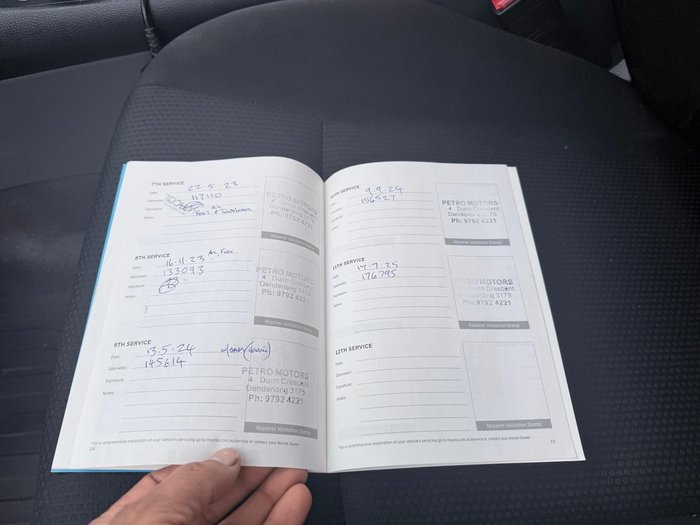 7TH SERVICE
Date: 22.5.23
Odometer: 117110
Signature: A/C
Notes: Belt & Tensioner
PETRO MOTORS
4 Dunn Crescent
Dandenong 3175
Ph: 9792 4221
Repairer Validation Stamp
8TH SERVICE
Date: 16.11.23 Air, Fuel.
Odometer: 133093
Signature:
Notes:
PETRO MOTORS
4 Dunn Crescent
Dandenong 3175
Ph: 9792 4221
Repairer Validation Stamp
9TH SERVICE
Date: 13.5.24
Odometer: 145614
Signature:
Notes:
PETRO MOTORS
4 Dunn Crescent
Dandenong 3175
Ph: 9792 4221
Repairer Validation Stamp
*For a comprehensive explanation of your vehicle's servicing go to mazda.com.au/service or contact your Mazda Dealer
14
10TH SERVICE
Date: 9.9.24
Odometer: 156527
Signature:
Notes:
PETRO MOTORS
4 Dunn Crescent
Dandenong 3175
Ph: 9792 4221
Repairer Validation Stamp
11TH SERVICE
Date: 17.7.25
Odometer: 176795
Signature:
Notes:
PETRO MOTORS
4 Dunn Crescent
Dandenong 3175
Ph: 9792 4221
Repairer Validation Stamp
12TH SERVICE
Date:
Odometer:
Signature:
Notes:
Repairer Validation Stamp
*For a comprehensive explanation of your vehicle's servicing go to mazda.com.au/service or contact your Mazda Dealer
15